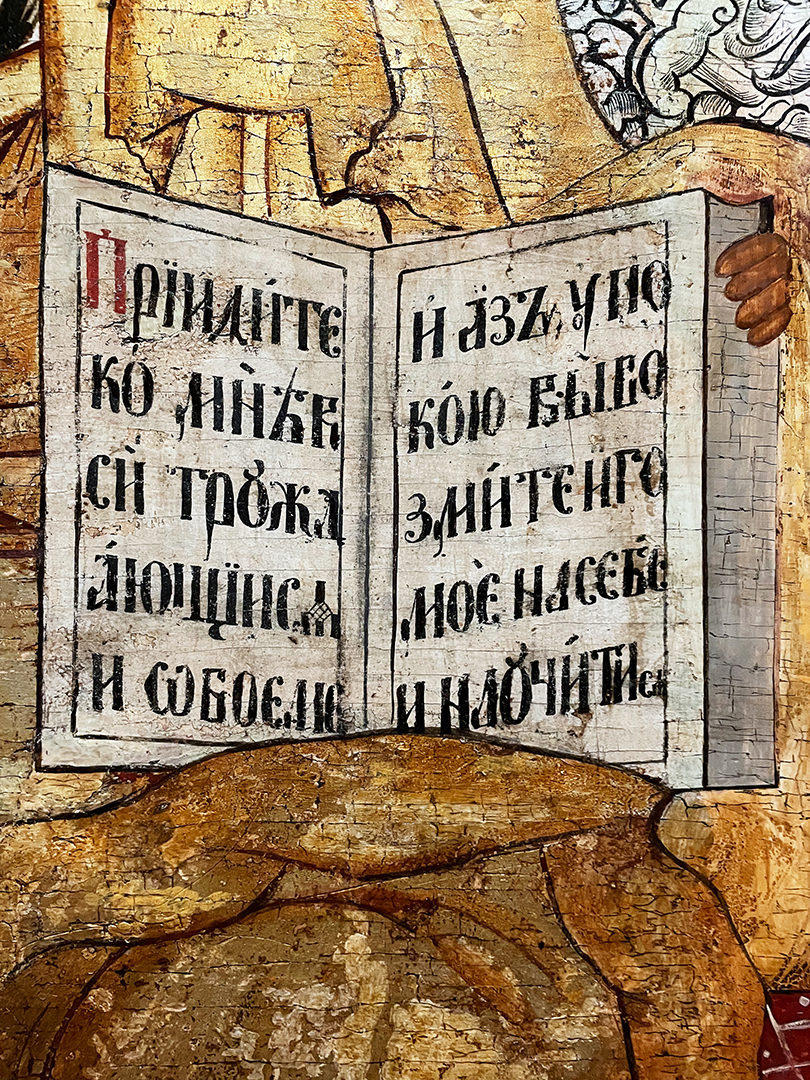 Прїиди́те
ко́ мнѣ̀ в
си́ трꙋжд
а́ющїиса
и ѡбоєме
и́ а́зъ ᲂупо
ко́ю вы̀ во
зми́те и́го
моѐ на себѐ
и наꙋчи́тиса